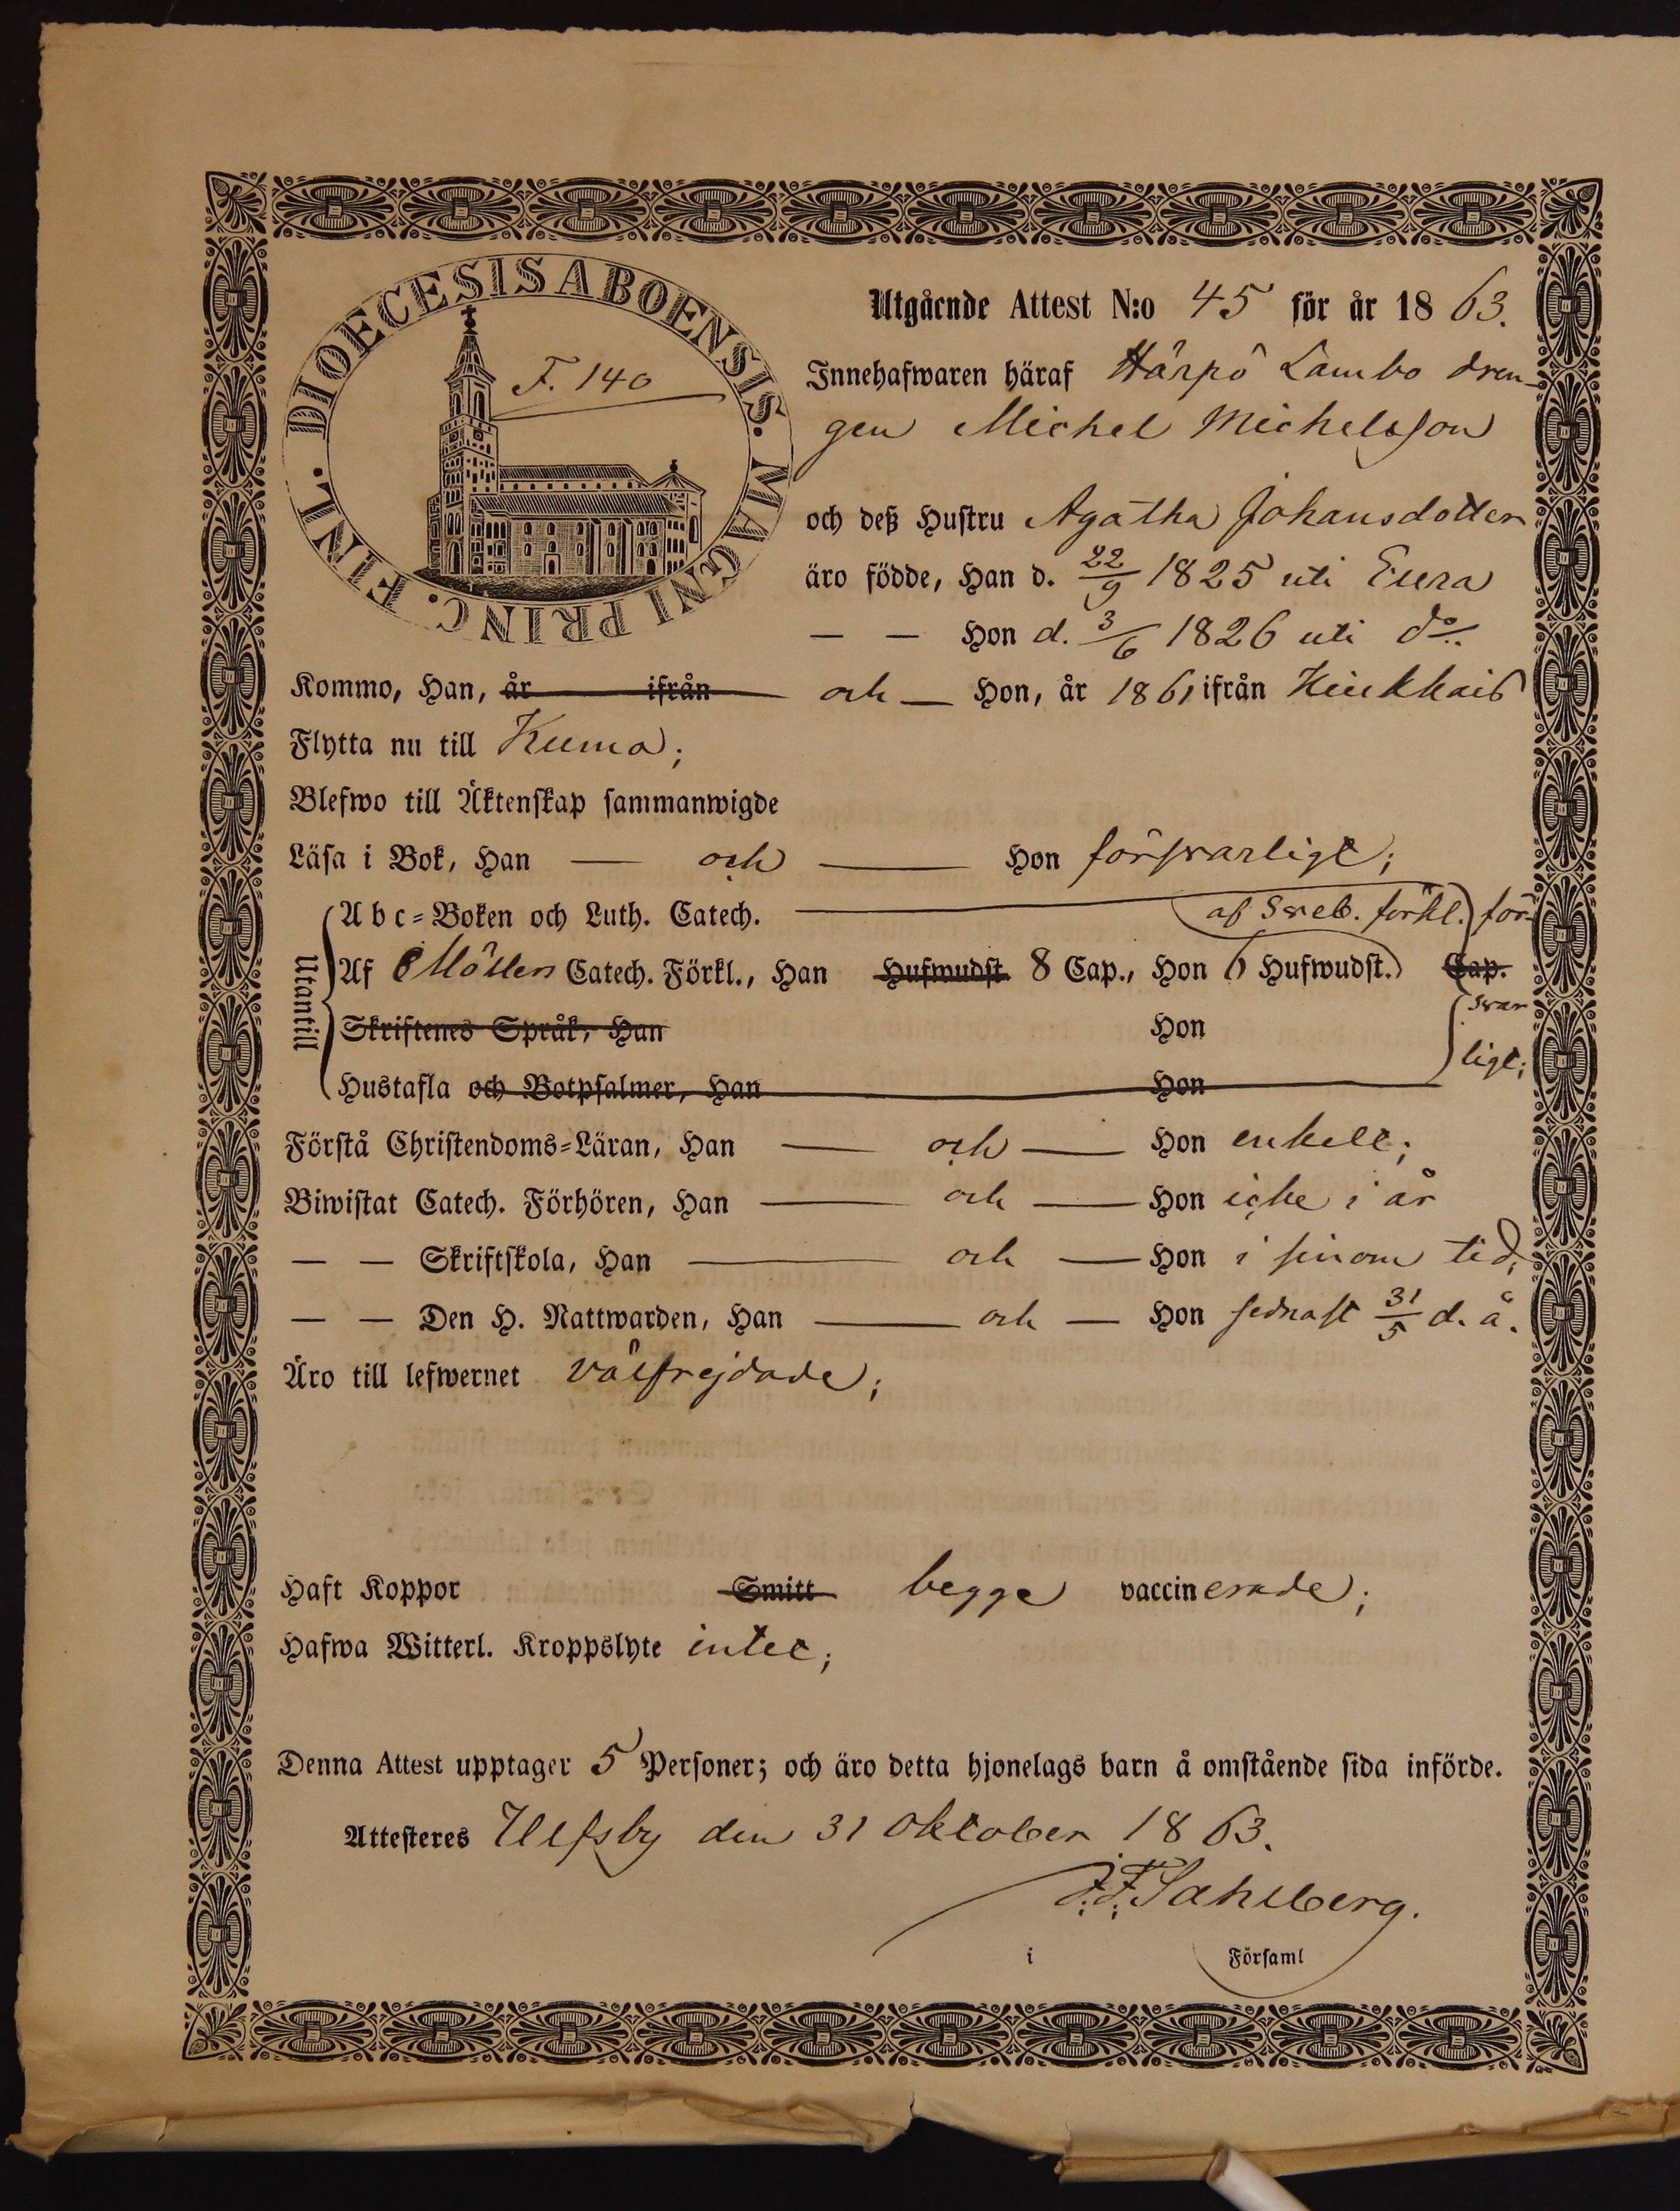 DIOECESIS ABOENSIS. MAGNI PRINC. FINL.
F. 140
Utgående Attest N:o 45 för år 1863.
Innehafwaren häraf Härpö Lambo dren-
gen Michel Michelsson
och deß Hustru Agatha Johansdotter
äro födde, Han d. 22/9 1825 uti Eura
— — Hon d. 3/6 1826 uti do.
Kommo, Han, år ifrån och — Hon, år 1861 ifrån
Flytta nu till Kumo;
Blefwo till Äktenskap sammanwigde
Läsa i Bok, Han — och — Hon försvarligt;
Utantill
Abc-Boken och Luth. Catech. — af Sveb. förkl. för-
Af Möllers Catech. Förkl., Han Hufwudst. 8 Cap., Hon 6 Hufwudst. Cap.
svar
Skriftenes Språk, Han Hon
ligt;
Hustafla och Botpsalmer, Han Hon
Förstå Christendoms-Läran, Han — och — Hon enkelt;
Biwistat Catech. Förhören, Han — och — Hon icke i år
— — Skriftskola, Han — och — Hon i sinom tid,
— — Den H. Nattwarden, Han — och — Hon sednast 31/5 d. å.
Äro till lefwernet välfrejdade;
Haft Koppor Smitt begge vaccinerade;
Hafwa Witterl. Kroppslyte intet;
Denna Attest upptager 5 Personer; och äro detta hjonelags barn å omstående sida införde.
Attesteres Ulfsby den 31 Oktober 1863.
J. F. Sahlberg.
i Församl